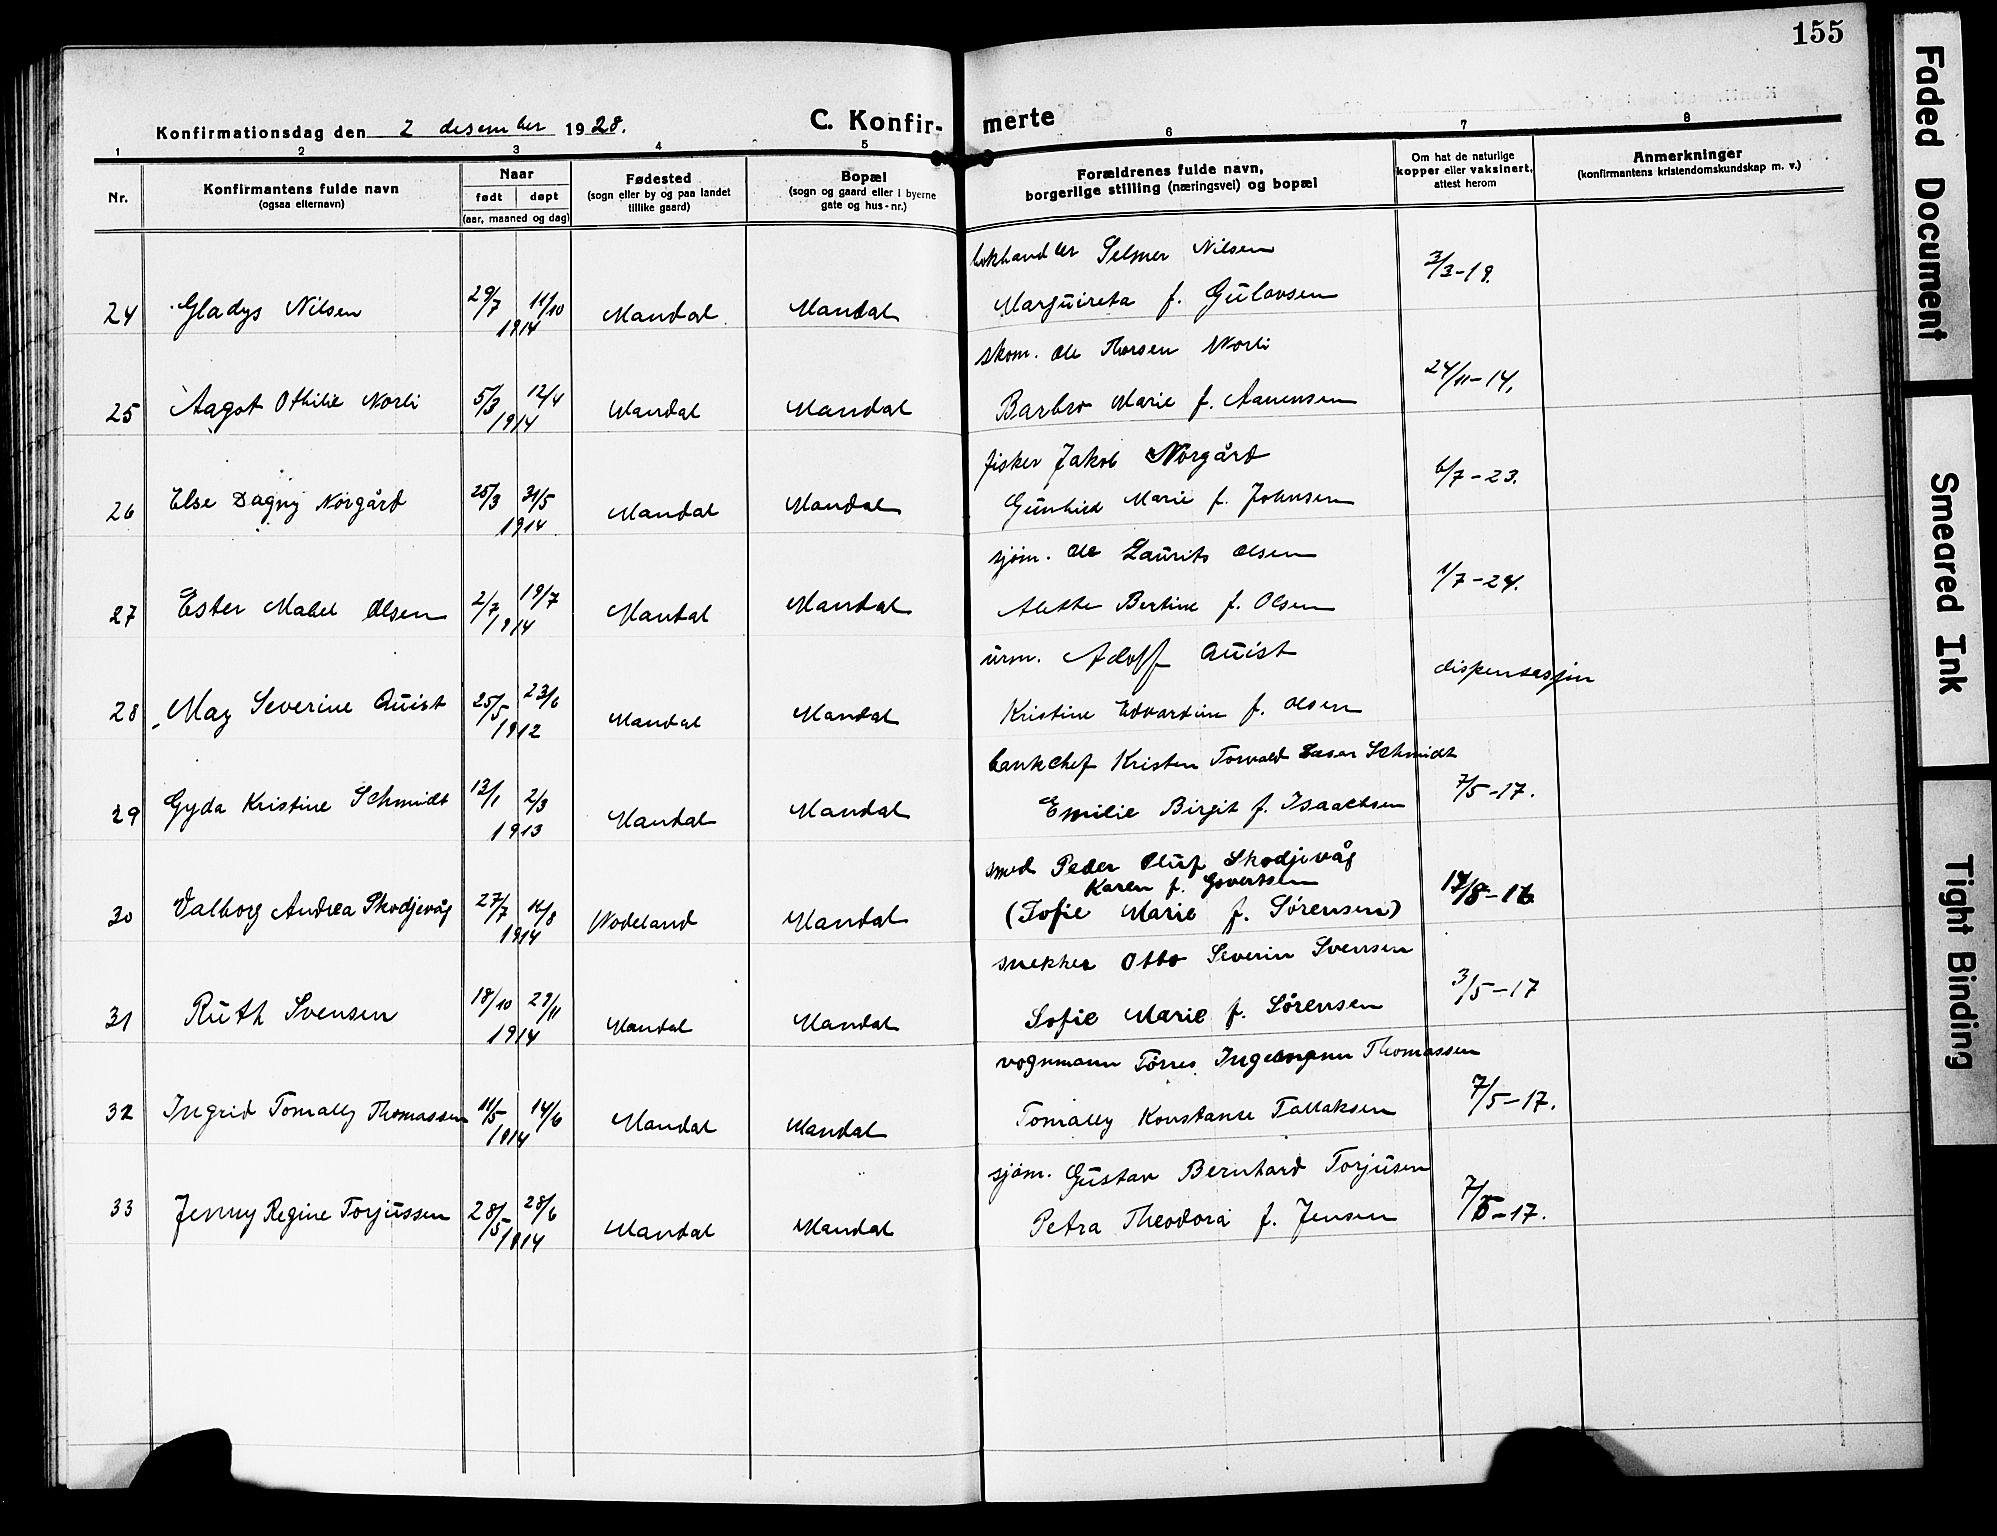 155
Konfirmationsdag den 2 desember 1928.
C. Konfir-merte
1 2 3 4 5 6 7 8
Nr.
Konfirmantens fulde navn
(ogsaa efternavn)
Naar
født døpt
(aar, maaned og dag)
Fødested
(sogn eller by og paa landet
tillike gaard)
Bopæl
(sogn og gaard eller i byerne
gate og hus-nr.)
Forældrenes fulde navn,
borgerlige stilling (næringsvei) og bopæl
Om hat de naturlige
kopper eller vaksinert,
attest herom
Anmerkninger
(konfirmantens kristendomskundskap m. v.)
bokhandler Selmer Nilsen
24 Gladys Nilsen 29/7 11/10 1914 Mandal Mandal Marguireta f. Gulovsen 3/3-19.
skom. Ole Thorsen Norli
25 Aagot Othilie Norli 5/3 12/4 1914 Mandal Mandal Barbro Marie f. Aanensen 24/11-14.
fisker Jakob Norgård
26 Else Dagny Norgård 25/3 31/5 1914 Mandal Mandal Gunhild Marie f. Johnsen 6/7-23.
sjøm. Ole Laurits Olsen
27 Ester Mabel Olsen 2/7 19/7 1914 Mandal Mandal Alette Bertine f. Olsen 1/7-24.
urm. Adolf Quist
28 May Severine Quist 25/5 23/6 1912 Mandal Mandal Kristine Edvardine f. Olsen dispensasjon
bankchef Kristen Torvald Lasar Schmidt
29 Gyda Kristine Schmidt 13/1 2/3 1913 Mandal Mandal Emilie Birgit f. Isaachsen 7/5-17.
smed Peder Oluf Skodjevåg
Karen f. Govertsen
30 Valborg Andrea Skodjevåg 27/7 16/8 1914 Nodeland Mandal (Sofie Marie f. Sørensen) 17/8-16
snekker Otto Severin Svensen
31 Ruth Svensen 18/10 29/11 1914 Mandal Mandal Sofie Marie f. Sørensen 3/5-17
vognmann Tørres Ingemann Thomassen
32 Ingrid Tomally Thomassen 11/5 14/6 1914 Mandal Mandal Tomally Konstanse Tallaksen 7/5-17.
sjøm. Gustav Bernhard Torjusen
33 Jenny Regine Torjussen 28/5 28/6 1914 Mandal Mandal Petra Theodora f. Jensen 7/5-17.
Faded Document
Smeared Ink
Tight Binding